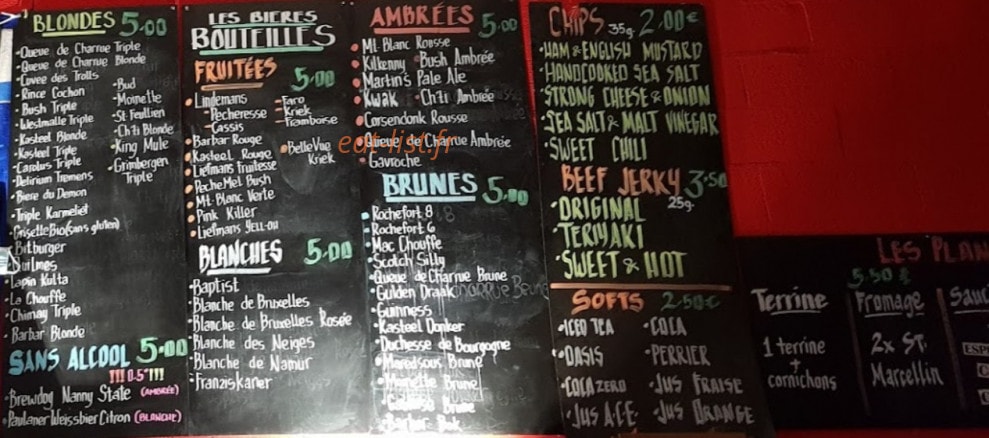 BLONDES 5,00
Queue de Charrue Triple
Queue de Charrue Blonde
Cuvee des Trolls
Rince Cochon
Bush Triple
Westmalle Triple
Kasteel Blonde
Kasteel Triple
Carolus Triple
Delirium Tremens
Biere du Demon
Triple Karmeliet
Grisette Bio (sans gluten)
Bitburger
Quilmes
Lapin Kulta
La Chouffe
Chimay Triple
Barbar Blonde
Bud
Moinette
St Feuillien
Ch'ti Blonde
King Mule
Grimbergen
Triple
SANS ALCOOL 5,00
!!! 0.5° !!!
Brewdog Nanny State (AMBRÉE)
Paulaner Weissbier Citron (BLANCHE)
LES BIERES
BOUTEILLES
FRUITÉES 5,00
Lindemans
Pecheresse
Cassis
Faro
Kriek
Framboise
Barbar Rouge
Kasteel Rouge
Liefmans Fruitesse
Peche Mel Bush
Mt. Blanc Verte
Pink Killer
Liefmans YELL-OH
Belle Vue
Kriek
BLANCHES 5,00
Baptist
Blanche de Bruxelles
Blanche de Bruxelles Rosée
Blanche des Neiges
Blanche de Namur
Franziskaner
AMBRÉES 5,00
Mt. Blanc Rousse
Kilkenny Bush Ambrée
Martin's Pale Ale
Kwak Ch'ti Ambrée
Corsendonk Rousse
Queue de Charrue Ambrée
Gavroche
eat-list.fr
BRUNES 5,00
Rochefort 8
Rochefort 6
Mac Chouffe
Scotch Silly
Queue de Charrue Brune
Gulden Draak
Guinness
Kasteel Donker
Duchesse de Bourgogne
Maredsous Brune
Brune
Brune
Barbar Bok
CHIPS 35g 2,00€
HAM & ENGLISH MUSTARD
HANDCOOKED SEA SALT
STRONG CHEESE & ONION
SEA SALT & MALT VINEGAR
SWEET CHILI
BEEF JERKY 3,50
25g.
ORIGINAL
TERIYAKI
SWEET & HOT
SOFTS 2,50€
ICED TEA
OASIS
COCA ZERO
JUS A.C.E.
COCA
PERRIER
JUS FRAISE
JUS ORANGE
LES PLAN
5.50 €
Terrine
1 terrine
+
cornichons
Fromage
2x ST.
Marcellin
Sauc